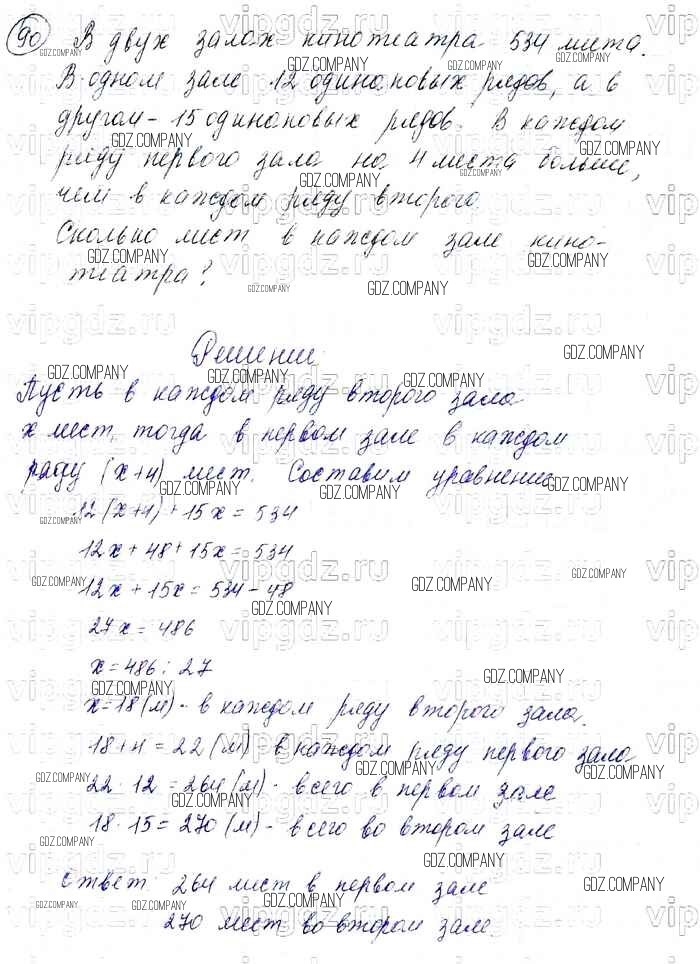 90 В двух залах кинотеатра 534 места.
В одном зале 12 одинаковых рядов, а в
другом - 15 одинаковых рядов. В каждом
ряду первого зала на 4 места больше,
чем в каждом ряду второго.
Сколько мест в каждом зале кино-
театра?
Решение.
Пусть в каждом ряду второго зала
x мест, тогда в первом зале в каждом
ряду (x+4) мест. Составим уравнение
12(x+4)+15x=534
12x+48+15x=534
12x+15x=534-48
27x=486
x=486:27
x=18(м) - в каждом ряду второго зала.
18+4=22(м) - в каждом ряду первого зала
22·12=264(м) - всего в первом зале
18·15=270(м) - всего во втором зале
Ответ 264 мест в первом зале
270 мест во втором зале.
GDZ.COMPANY
vipgdz.ru